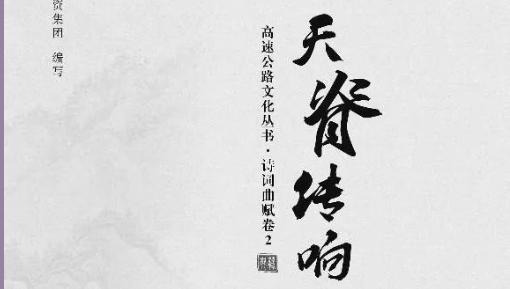 天脊传响
高速公路文化丛书·诗词曲赋卷2
资集团 编写